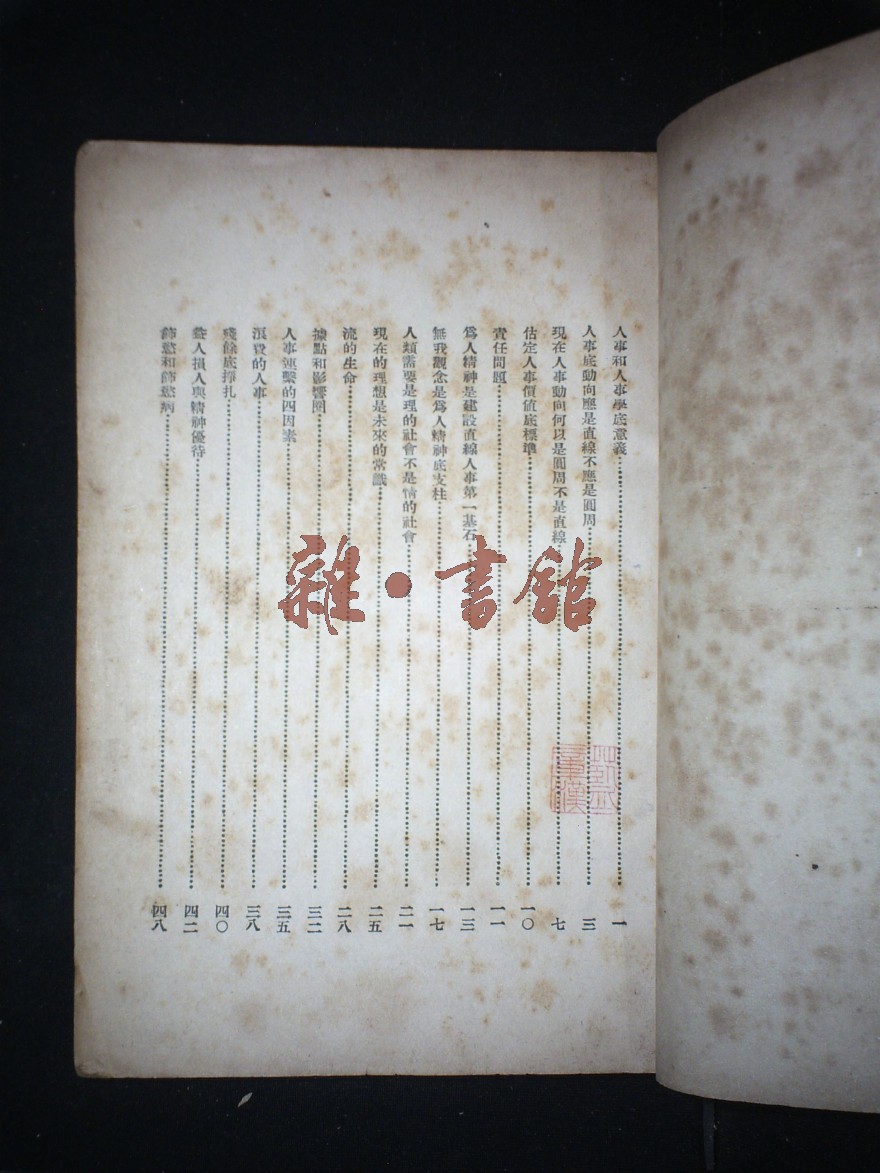 人事和人事學底意義……一
人事底動向應是直線不應是圓周……三
現在人事動向何以是圓周不是直線……七
估定人事價値底標準……一〇
責任問題……一一
爲人精神是建設直線人事第一基石……一三
無我觀念是爲人精神底支柱……一七
人類需要是理的社會不是情的社會……二一
現在的理想是未來的常識……二五
流的生命……二八
據點和影響圈……三二
人事連繫的四因素……三五
浪費的人事……三八
殘餘底掙扎……四〇
損人與精神優待……四二
飾慾和飾慾病……四八
雜·書館